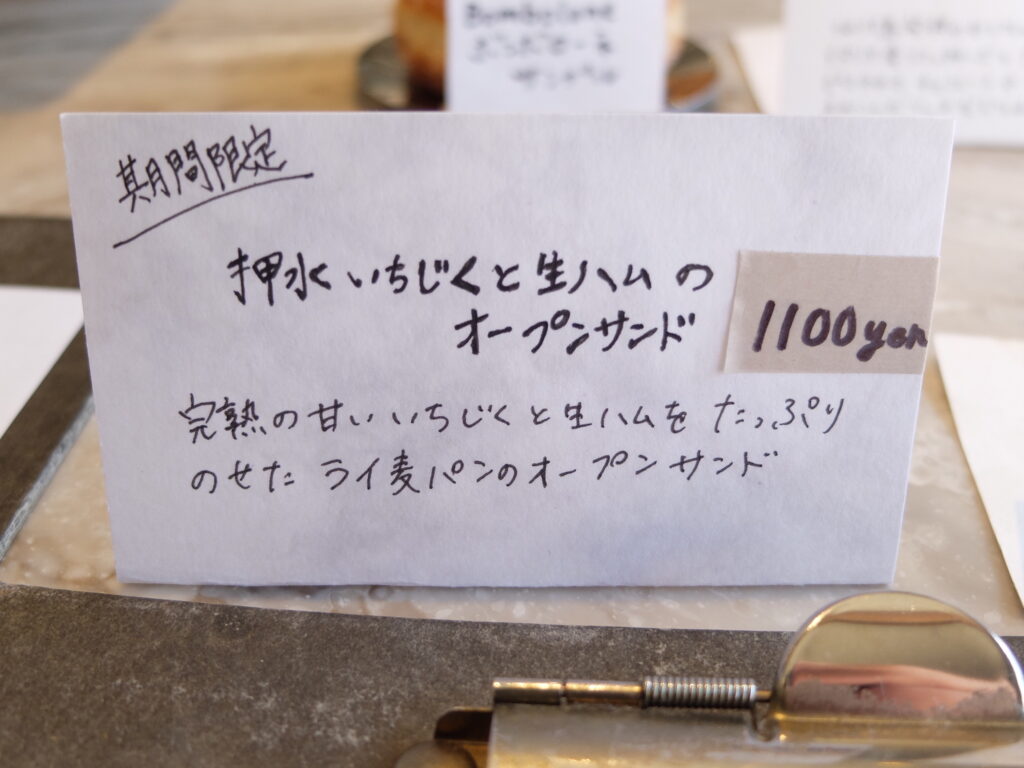 Bombolone
期間限定
押水いちじくと生ハムの
オープンサンド
1100yen
完熟の甘いいちじくと生ハムを たっぷり
のせた ライ麦パンのオープンサンド